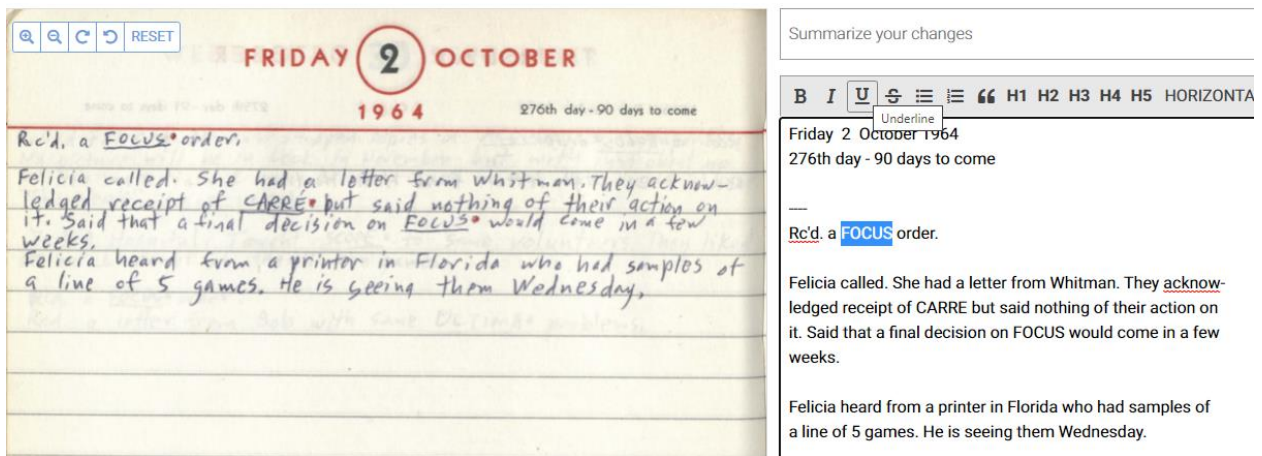 RESET
FRIDAY 2 OCTOBER
1964
276th day - 90 days to come
Rc'd. a FOCUS• order.
Felicia called. She had a letter from Whitman. They acknow-
ledged receipt of CARRÉ• but said nothing of their action on
it. Said that a final decision on FOCUS• would come in a few
weeks.
Felicia heard from a printer in Florida who had samples of
a line of 5 games. He is seeing them Wednesday.
Summarize your changes
B I U S H1 H2 H3 H4 H5 HORIZONTA
Underline
Friday 2 October 1964
276th day - 90 days to come
----
Rc'd. a FOCUS order.
Felicia called. She had a letter from Whitman. They acknow-
ledged receipt of CARRE but said nothing of their action on
it. Said that a final decision on FOCUS would come in a few
weeks.
Felicia heard from a printer in Florida who had samples of
a line of 5 games. He is seeing them Wednesday.